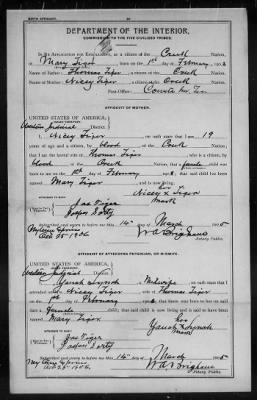 BIRTH AFFIDAVIT.
DEPARTMENT OF THE INTERIOR.
COMMISSION TO THE FIVE CIVILIZED TRIBES.
IN RE APPLICATION FOR ENROLLMENT, as a citizen of the Creek Nation,
of Mary Tiger, born on the 1st day of February, 190
Name of Father: Thomas Tiger a citizen of the Creek Nation.
Name of Mother: Nicey Tiger a citizen of the Creek Nation.
Post-Office: Coweta Ind. Ter.
AFFIDAVIT OF MOTHER.
UNITED STATES OF AMERICA,
INDIAN TERRITORY,
Western Judicial District.
I, Nicey Tiger, on oath state that I am 19
years of age and a citizen by blood of the Creek Nation;
that I am the lawful wife of Thomas Tiger, who is a citizen, by
blood of the Creek Nation; that a female child was
born to me on 1st day of February; that said child has been
named Mary Tiger, and is now living.
her
Nicey x Tiger
mark
WITNESSES TO MARK:
Jas Tiger
Subscribed and sworn to before me this 14th day of March, 1905
My Com Expires
Notary Public.
AFFIDAVIT OF ATTENDING PHYSICIAN, OR MIDWIFE.
UNITED STATES OF AMERICA,
INDIAN TERRITORY,
Western Judicial District.
I, Lynch, a Midwife, on oath state that I
attended on Nicey Tiger, wife of Thomas Tiger
on the 1st day of February; that there was born to her on said date a
female child; that said child is now living and is said to have been
named Mary Tiger
her
Lynch
mark
WITNESSES TO MARK:
Jas Tiger
Subscribed and sworn to before me this 14th day of March, 1905
My Com Expires
Notary Public.